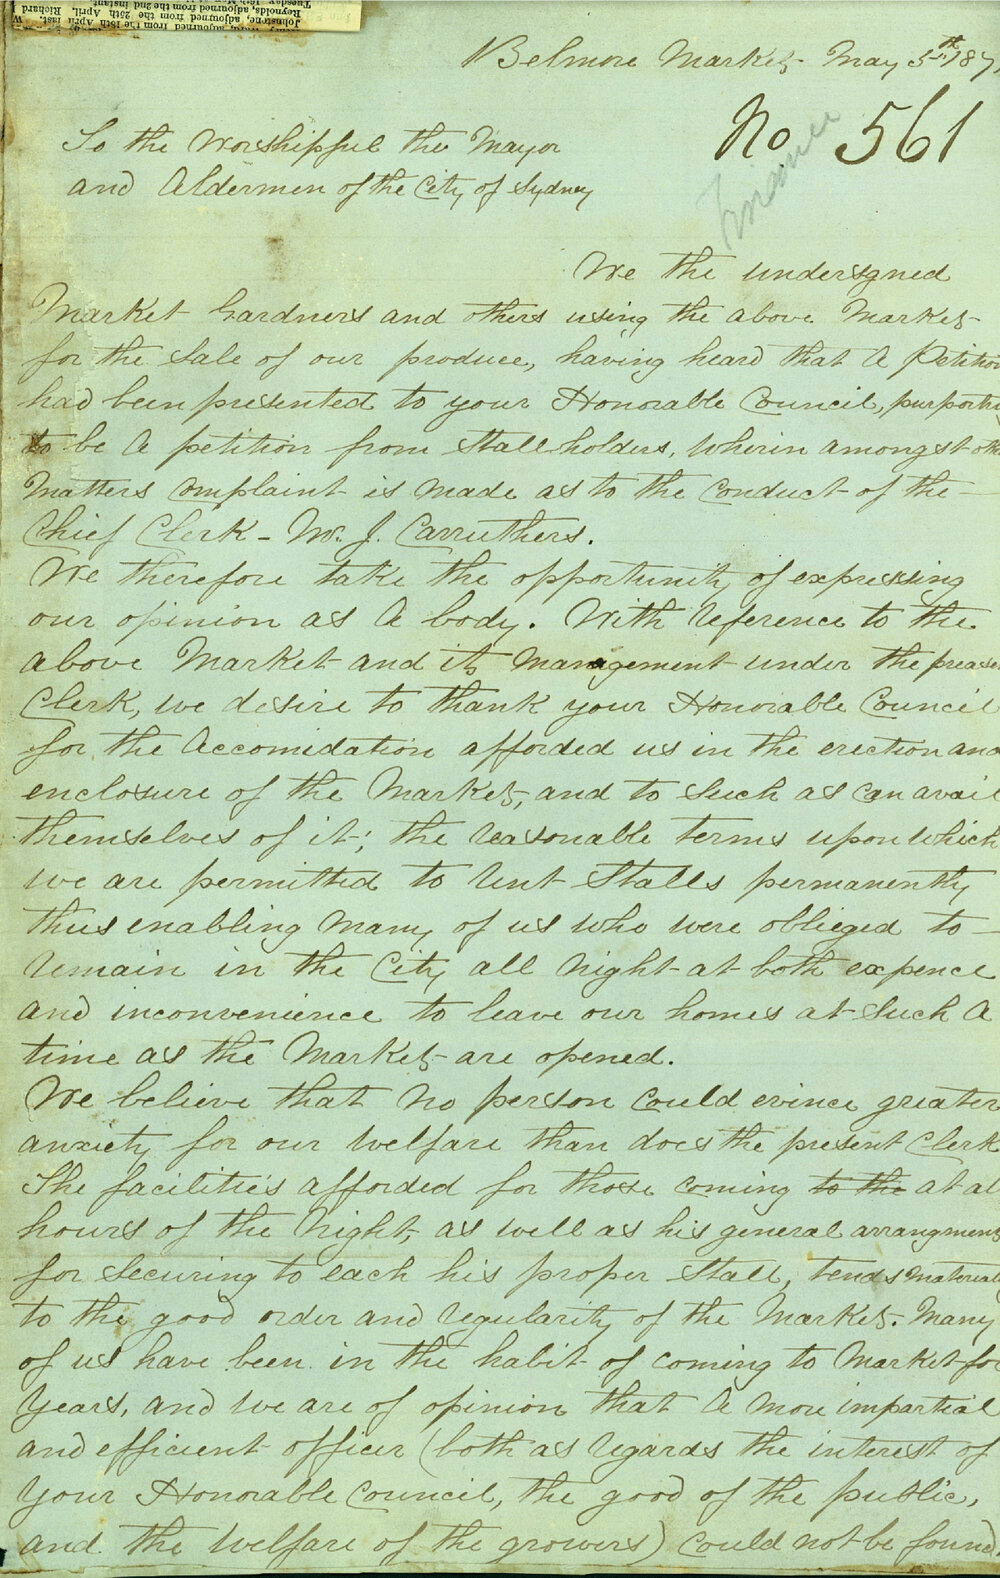 Belmore Market May 5th 187
No 561
Finance
To the Worshipful the Mayor
and Aldermen of the City of Sydney
We the undersgned
Market Gardners and others using the above Market
for the Sale of our produce, having heard that a Petition
had been presented to your Honorable Council, purporti
to be a petition from Stallholders, wherin amongst oth
Matters complaint is made as to the conduct of the
Chief Clerk - Mr. J. Carruthers.
We therefore take the opportunity of expressing
our opinion as a body. With reference to the
above Market and its Management under the presen
Clerk, we desire to thank your Honorable Council
for the Accomidation afforded us in the erection and
enclosure of the Market, and to such as can avail
themselves of it; the reasonable terms upon which
we are permitted to rent Stalls permanently
thus enabling many of us who were oblieged to
remain in the City all night at both expence
and inconvenience to leave our homes at such a
time as the Market are opened.
We believe that no person could evince greater
anxiety for our welfare than does the present Clerk
The facilities afforded for those coming to the at al
hours of the Night, as well as his general arrangments
for securing to each his proper Stall, tends material
to the good order and regularity of the Market. Many
of us have been in the habit of coming to Market for
Years, and we are of opinion that a more impartial
and efficient officer (both as regards the interest of
Your Honorable Council, the good of the public,
and the welfare of the growers) could not be found.